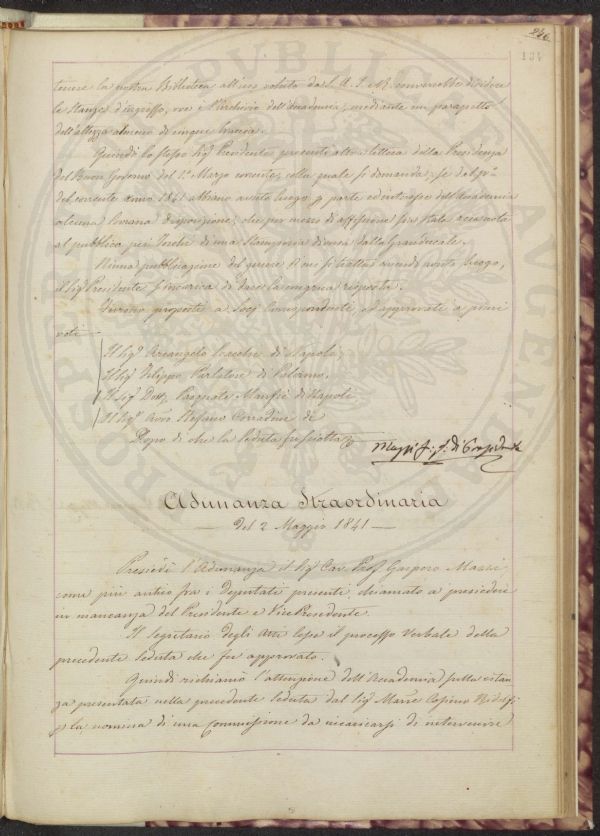 246
134
tenere la nostra Biblioteca all'uso voluto dal converrebbe dividere
le Stanze d'ingresso, ove è l'Archivio dell'Accademia, mediante un parapetto
dell'altezza almeno di cinque braccia.
Quindi lo stesso Sig.r Presidente presentò altra lettera della Presidenza
del Buon Governo del 1.º Marzo corrente, colla quale si domanda, se dal p.mo
del corrente anno 1841 abbiano avuto luogo p parte ed interesse dell'Accademia
alcuna disposizione, che per mezzo di affissione sia stata
al pubblico pei Torchi di una Stamperia diversa dalla Granducale.
Niuna pubblicazione del genere di cui si tratta avendo avuto luogo,
il Sig.r Presidente s'incarica di dare la congrua risposta.
Furono proposti a Socj Corrispondenti, ed approvati a pieni
voti —
Il Sig.r Arcangelo di Napoli,
Il Sig.r Filippo Parlatore di Palermo,
Il Sig.r Dott. Pasquale Manfrè di Napoli,
Il Sig.r Avv.o Stefano Corradini di
Dopo di che la Seduta fu sciolta
Mazzi f. f. di Presidente
Adunanza Straordinaria
— Del 2 Maggio 1841 —
Presiedè l'Adunanza il Sig.r Cav. Prof. Gaspero Mazzi
come più antico fra i Deputati presenti, chiamato a presiedere
in mancanza del Presidente e VicePresidente.
Il Segretario degli Atti lesse il processo verbale della
precedente Seduta che fu approvato.
Quindi richiamò l'attenzione dell'Accademia sulla istan
za presentata nella precedente Seduta dal Sig.r March.e Cosimo Ridolfi
p la nomina di una Commissione da incaricarsi di intervenire